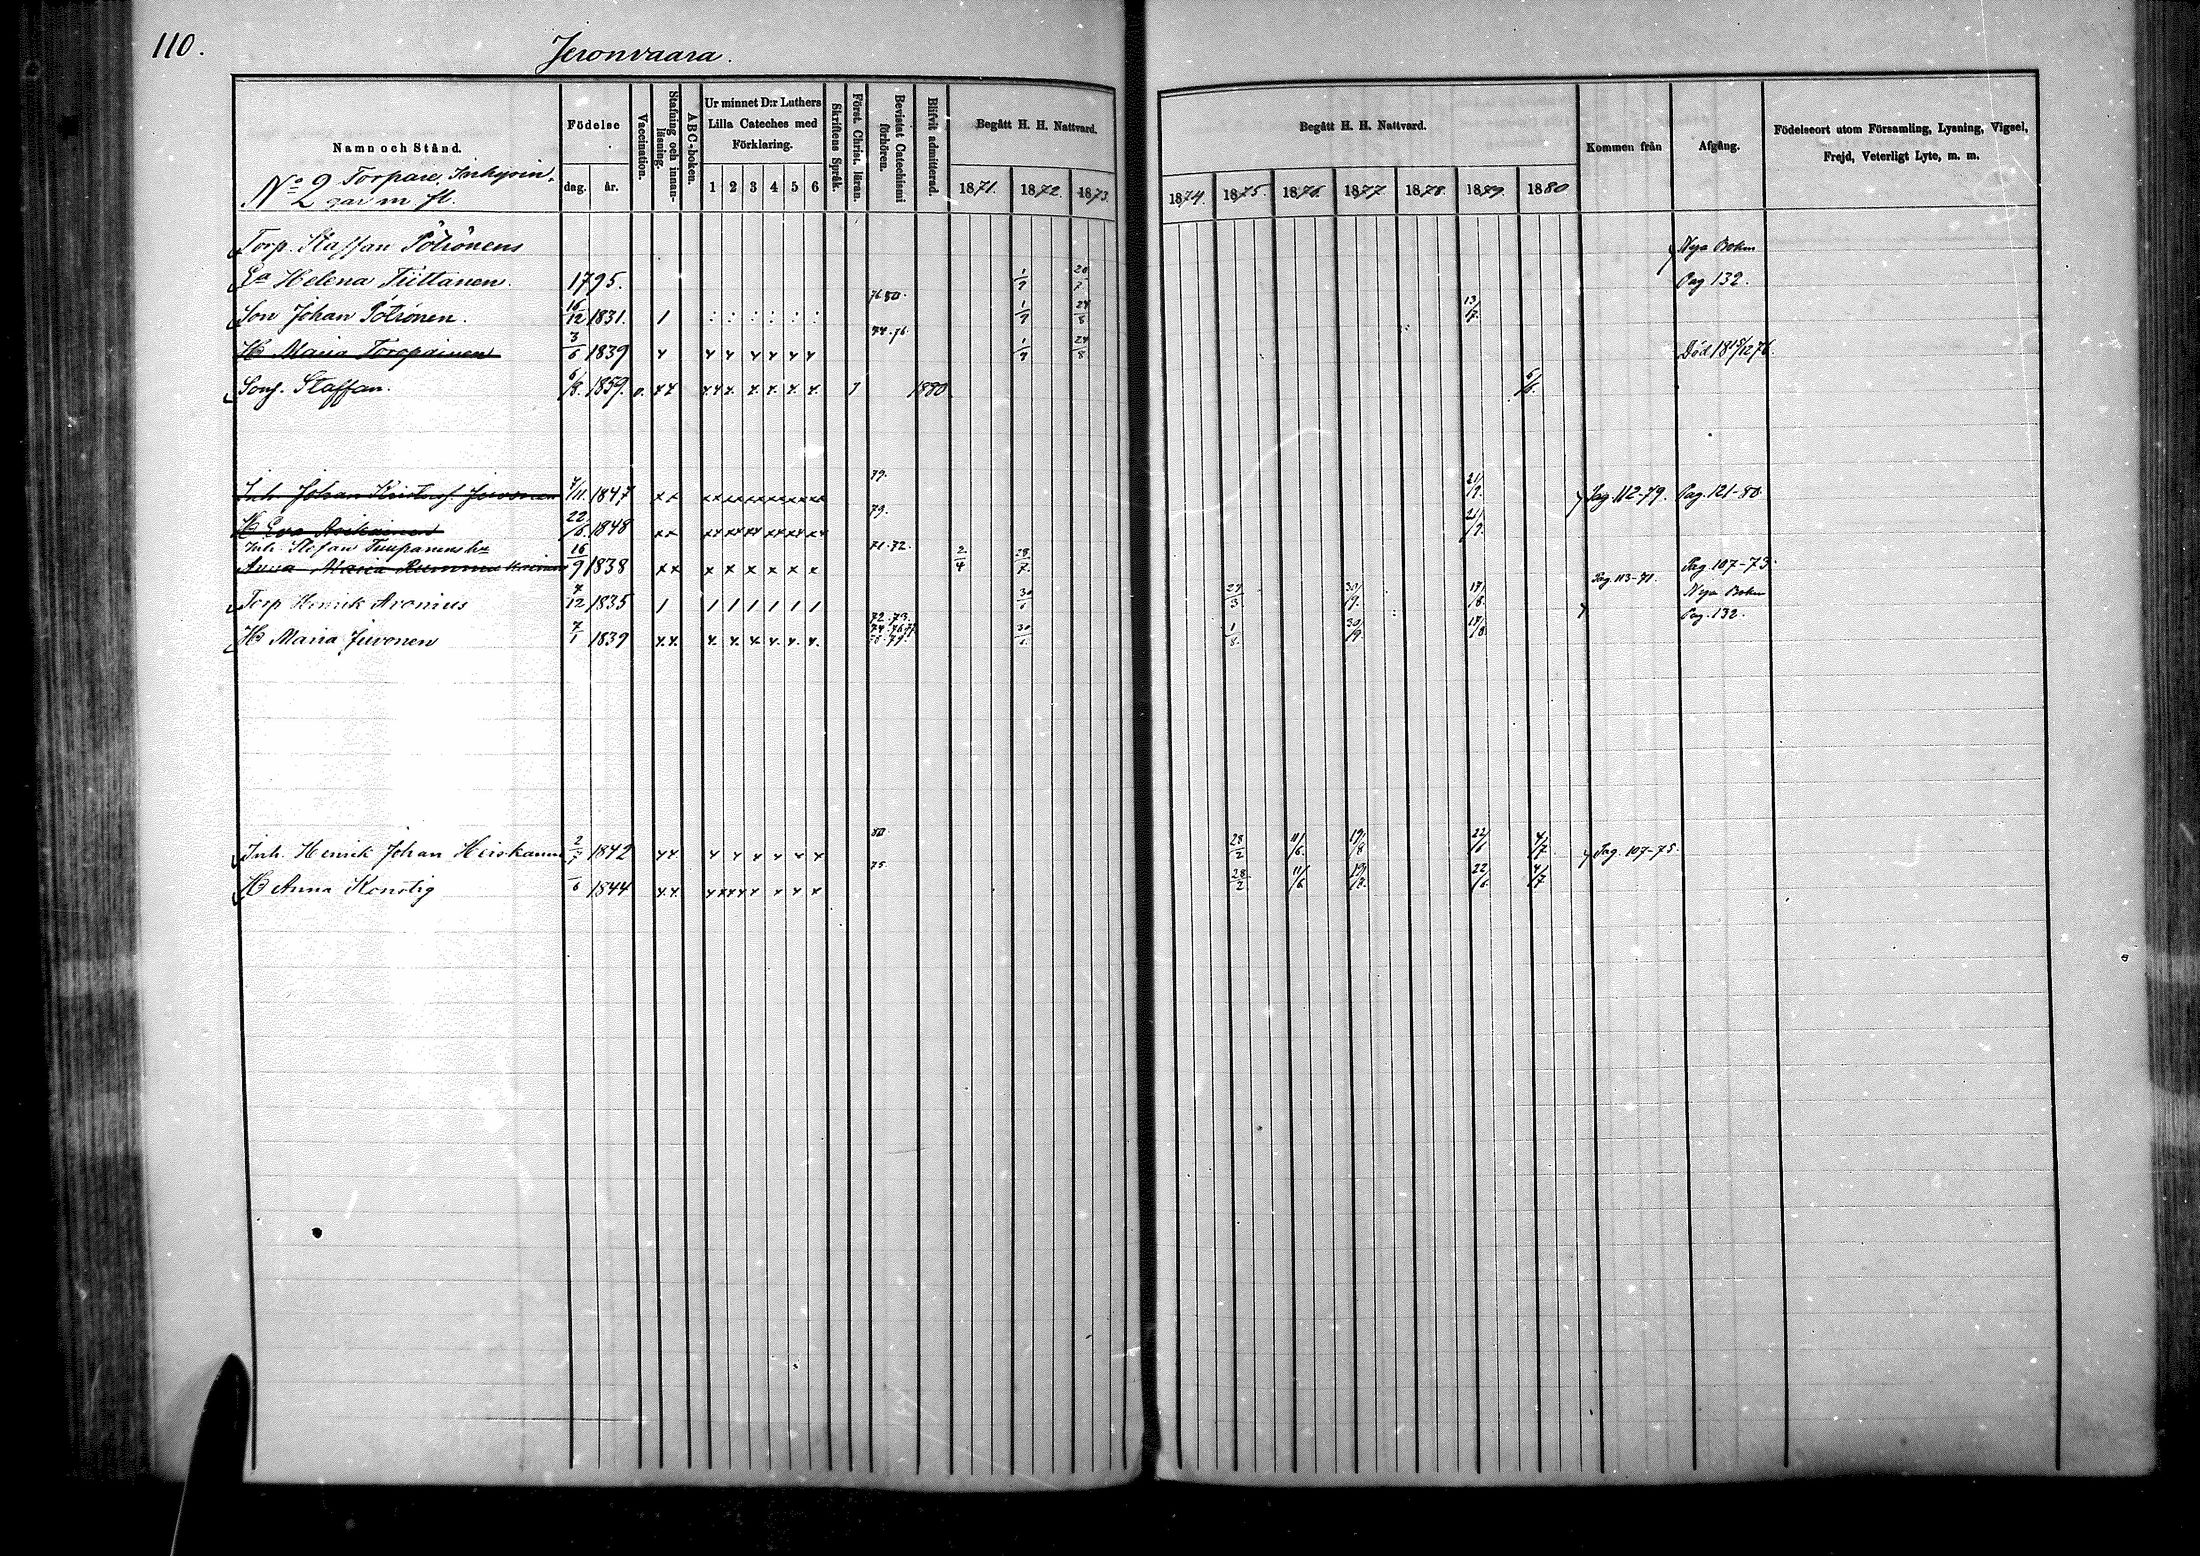 110.
Jeronvaara.
Namn och Stånd.
Födelse
dag.
år.
Vaccination.
Stafning och innan-läsning.
ABC-boken.
Ur minnet D:r Luthers
Lilla Cateches med
Förklaring.
1 2 3 4 5 6
Skriftens Språk.
Först. Christ. läran.
Bevistat Catechismi förhören.
Blifvit admitterad.
Begått H. H. Nattvard.
1871. 1872. 1873.
Begått H. H. Nattvard.
1874. 1875. 1876. 1877. 1878. 1879. 1880
Kommen från
Afgång.
Födelseort utom Församling, Lysning, Vigsel,
Frejd, Veterligt Lyte, m. m.
No 2 Torpare, Inhysin-
gar m fl.
Torp. Staffan Pötrönens Nya Boken
Ea Helena Tiittanen. 1795. 1/7 Pag 132.
Son Johan Pötrönen. 16/12 1831. 1 76 80. 1/7 24/8 13/7.
Hu Maria Toropainen 3/6 1839 74.76. 1/7 24/8 Död 18 18/12 76.
Sons. Staffan. 6/8. 1859. v. 1 1880 6/6.
Inh. Johan Kristof. Juvonen 7/11. 1847 79. 21/9. Pag. 112-79. Pag. 121-80.
Hu Eva 22/6. 1848 79. 21/9.
Inh. Stefan Timpanens hu
Anna Maria 16/9 1838 71.72. 2/4 28/7 Pag. 113-71. Pag. 107-73.
Torp Henrik Aronius 7/12 1835 1 1 1 1 1 1 1 30/6 29/3 30/9. 17/8. Nya Boken
Hu Maria Juvonen 7/1 1839 72.73. 30/6. 1/8. 30/9 17/8 Pag. 132.
Inh. Henrik Johan Heiskanen 2/7 1842 80. 28/2 11/6. 19/8 22/6 4/7 Pag. 107-75.
Hu Anna Konstig /6 1844 75. 28/2. 11/6 19/8. 22/6. 4/7